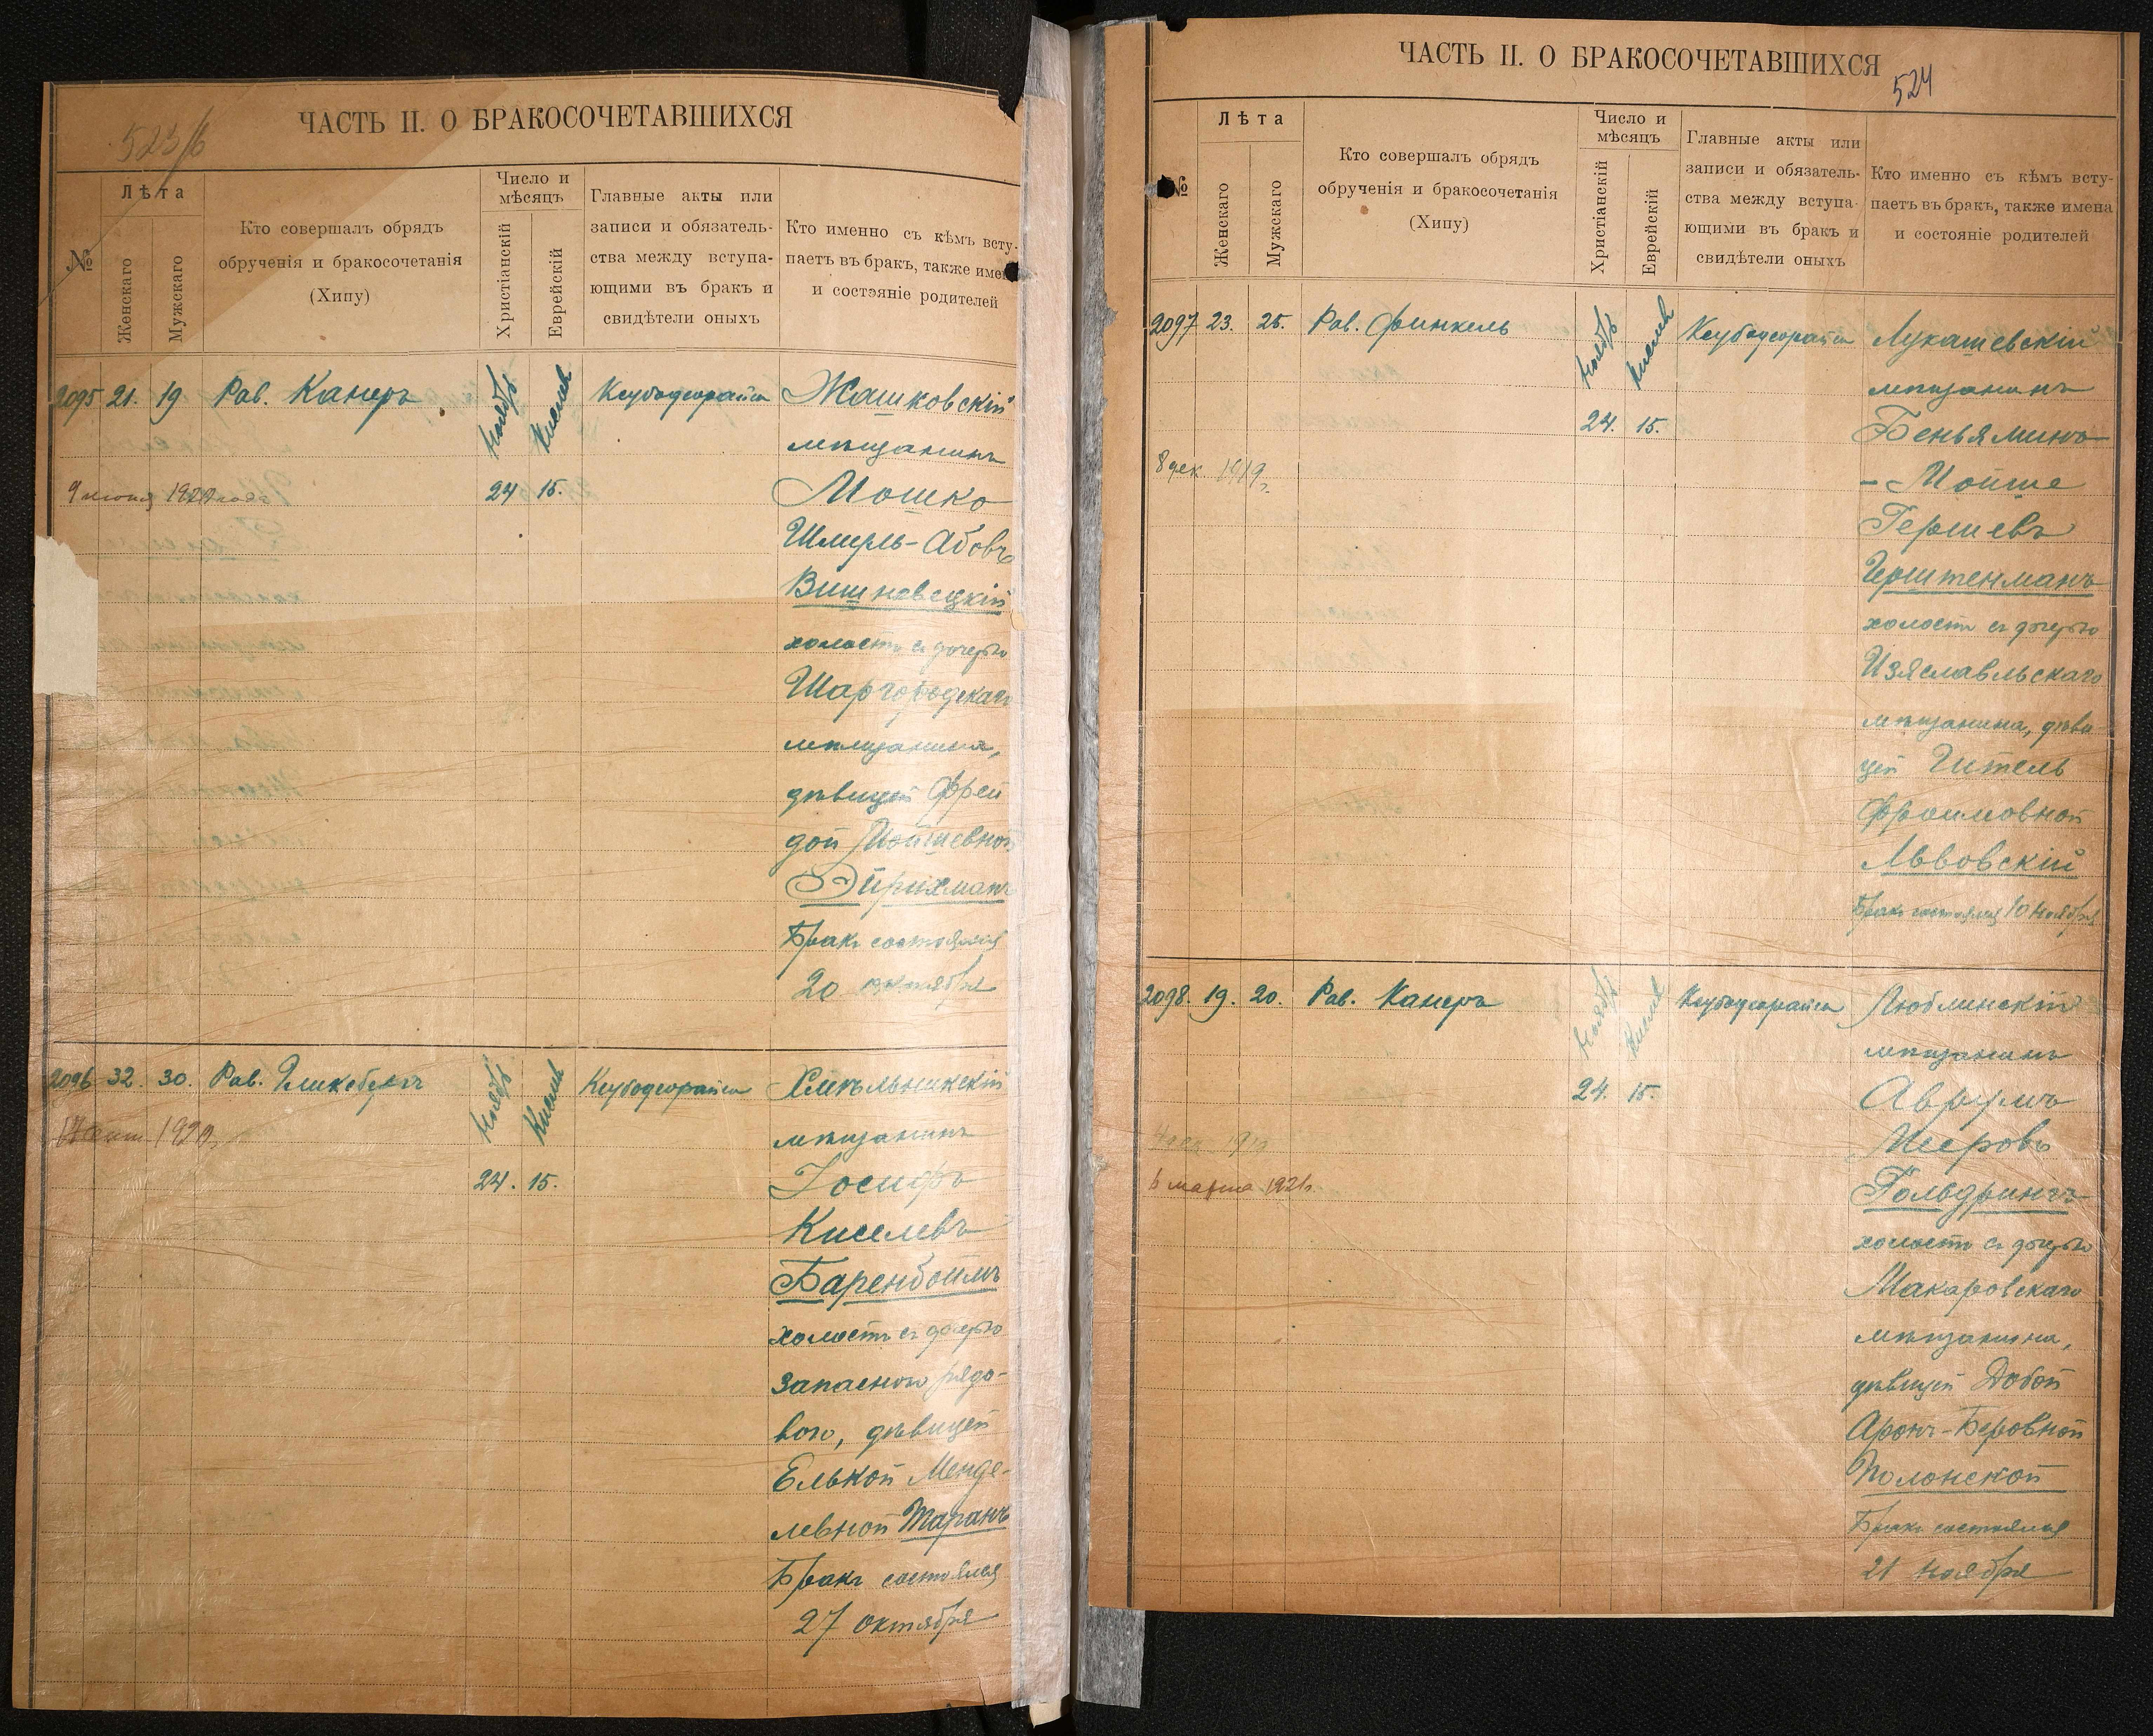 523/б
ЧАСТЬ II. О БРАКОСОЧЕТАВШИХСЯ
№
Лѣта
Женскаго
Мужскаго
Кто совершалъ обрядъ
обрученія и бракосочетанія
(Хипу)
Число и
мѣсяцъ
Христіанскій
Еврейскій
Главные акты или
записи и обязатель-
ства между вступа-
ющими въ бракъ и
свидѣтели оныхъ
Кто именно съ кѣмъ всту-
паетъ въ бракъ, также имен
и состояніе родителей
2095 21. 19 Рав. Канеръ Ноябрь Кислев Ксубодеорайса Жашковскій
мѣщанинъ
1920 24 15. Мошко
Шмуль-Абовъ
Вишневецкій
холостъ съ дочерью
Шаргородскаго
мѣщанина,
дѣвицей Фрей
дой Мойшевной
Эйрихманъ
Бракъ состоялся
20 октября
2096 32. 30. Рав. Гликсбергъ Ноябрь Кислев Ксубодеорайса Хмельникскій
1920 мѣщанинъ
24. 15. Іосифъ
Киселевъ
Баренбоимъ
холостъ съ дочерью
запасного рядо-
вого, дѣвицей
Елькой Менде-
левной Таранъ
Бракъ состоялся
27 октября
ЧАСТЬ II. О БРАКОСОЧЕТАВШИХСЯ
524
№
Лѣта
Женскаго
Мужскаго
Кто совершалъ обрядъ
обрученія и бракосочетанія
(Хипу)
Число и
мѣсяцъ
Христіанскій
Еврейскій
Главные акты или
записи и обязатель-
ства между вступа-
ющими въ бракъ и
свидѣтели оныхъ
Кто именно съ кѣмъ всту-
паетъ въ бракъ, также имена
и состояніе родителей
2097 23. 25. Рав. Финкель Ноябрь Кислев Ксубодеорайса Лукашевскій
мѣщанинъ
24. 15. Беньяминъ
8 дек. 1919 г. - Мойше
Гершевъ
Герштенманъ
холостъ съ дочерью
Изяславльскаго
мѣщанина, дѣви-
цей Гитель
Фроимовной
Львовскій
Бракъ состоялся 10 Ноября
2098. 19. 20. Рав. Канеръ Ноябрь Кислев Ксубодеорайса Люблинскій
мѣщанинъ
24. 15. Аврумъ
Мееровъ
6 марта 1921 г. Гольдрингъ
холостъ съ дочерью
Макаровскаго
мѣщанина,
дѣвицей Добой
Аронъ-Беровной
Полонской
Бракъ состоялся
21 Ноября